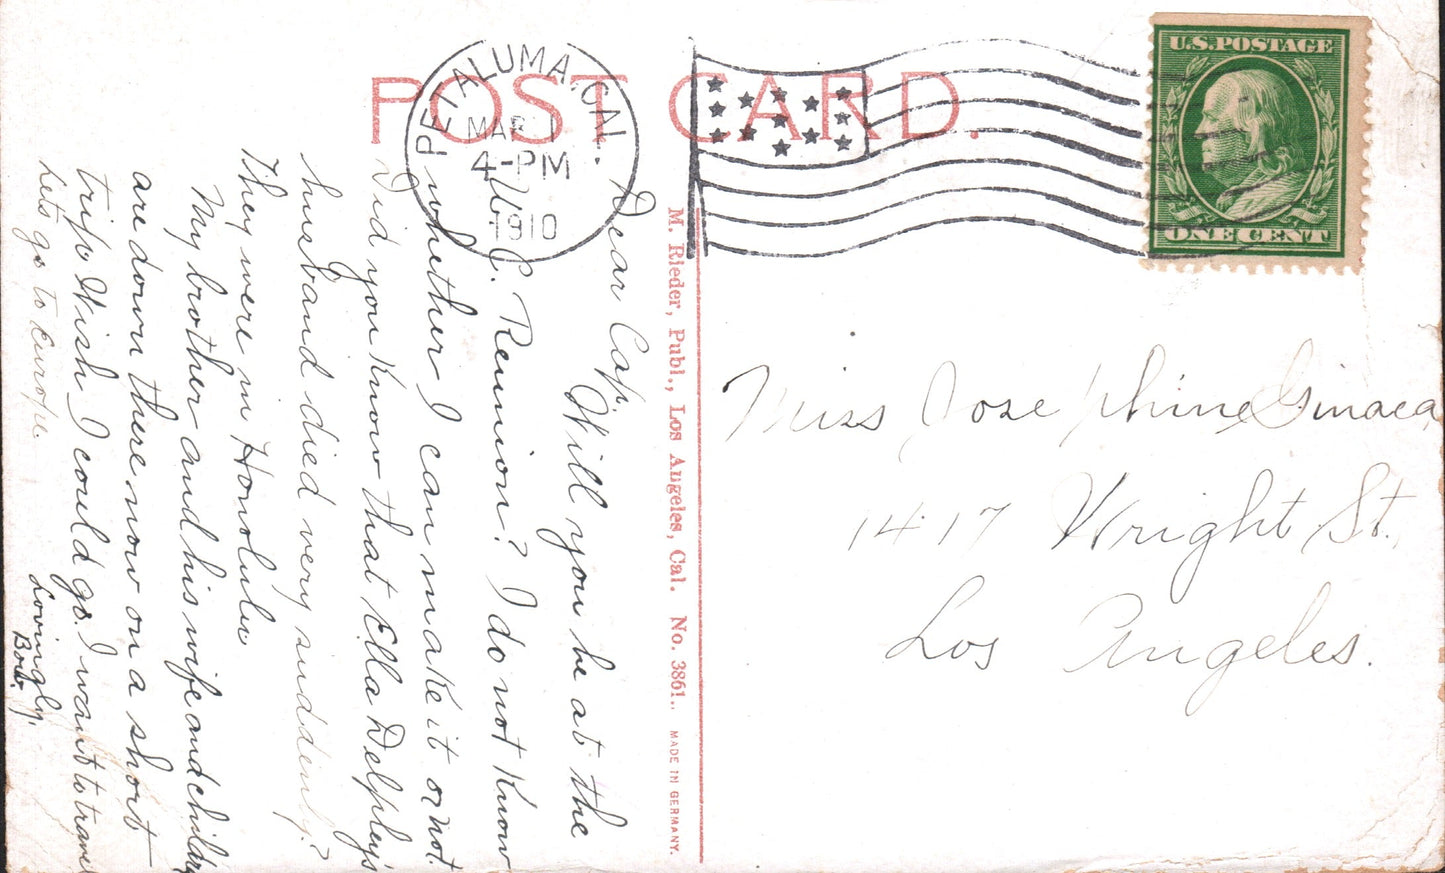 POST CARD.
PETALUMA, CAL.
MAR 1
4-PM
1910
U.S. POSTAGE
ONE CENT
Dear Cap.
Will you be at the
U. C. Reunion? I do not know
whether I can make it or not.
Did you know that Ella Delphey's
husband died very suddenly?
They were in Honolulu
My brother and his wife and children
are down there now on a short
trip. Wish I could go. I want to travel
Lets go to Europe.
Lovingly,
M. Rieder, Publ., Los Angeles, Cal. No. 3861.. MADE IN GERMANY.
Miss Josephine Ginaca
1417 Wright St.,
Los Angeles.